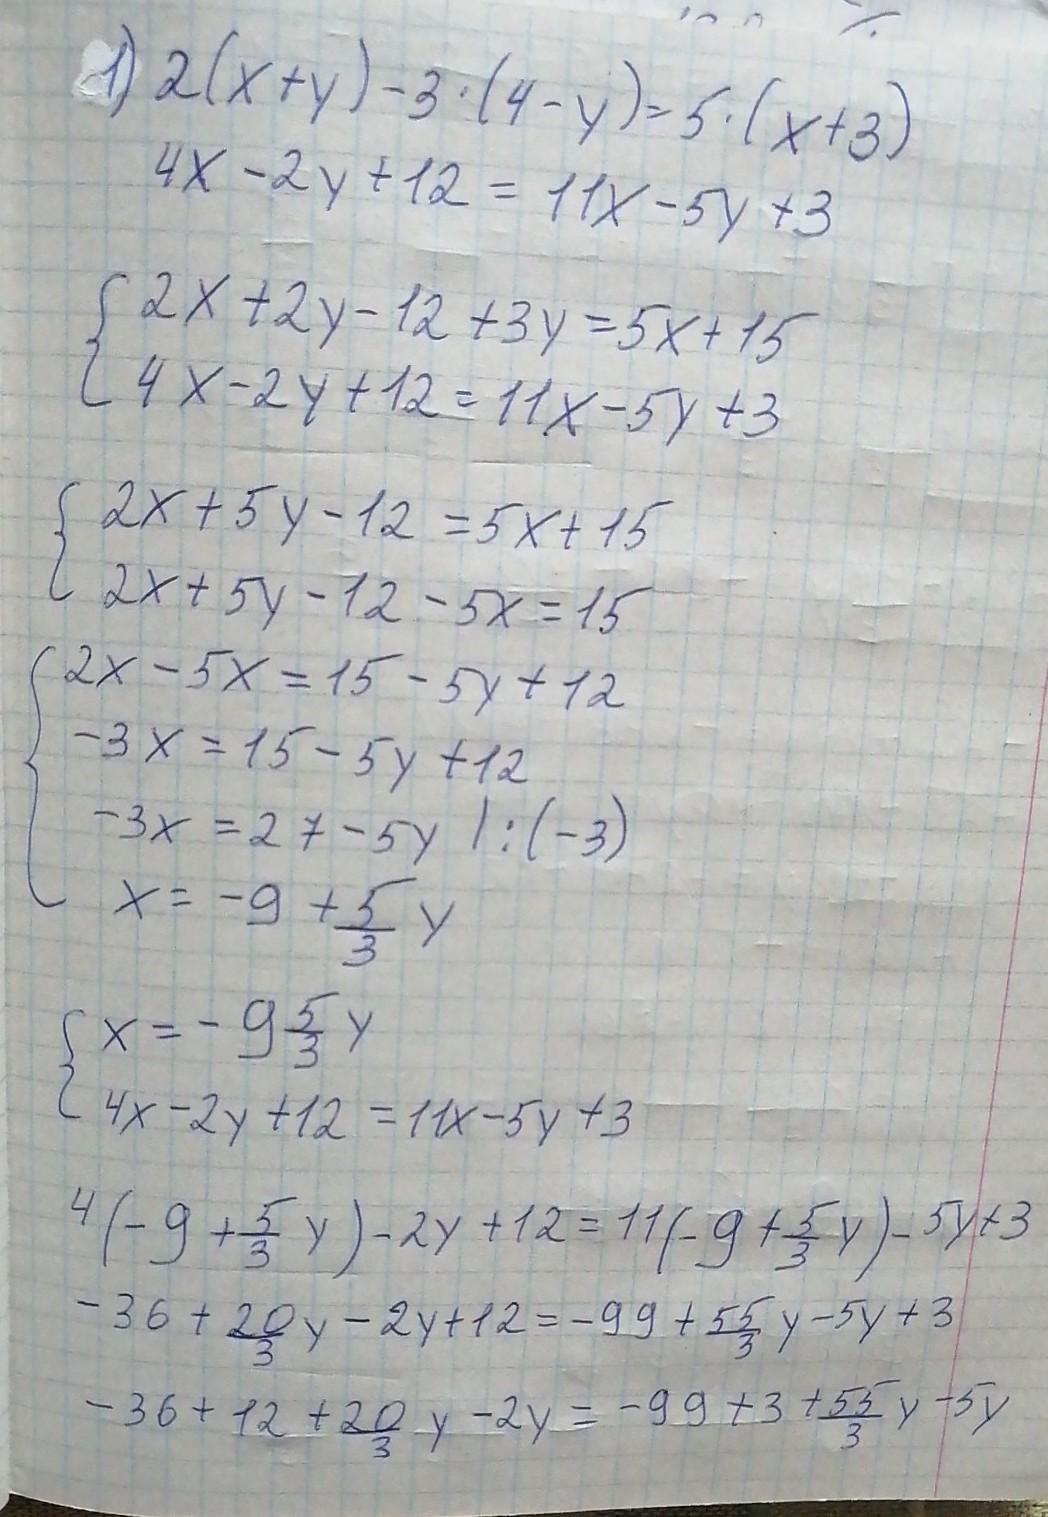 1) 2(x+y)-3·(4-y)=5·(x+3)
4x-2y+12=11x-5y+3
{2x+2y-12+3y=5x+15
4x-2y+12=11x-5y+3
{2x+5y-12=5x+15
2x+5y-12-5x=15
{2x-5x=15-5y+12
-3x=15-5y+12
-3x=27-5y |:(-3)
x=-9+5/3 y
{x=-9 5/3 y
4x-2y+12=11x-5y+3
4(-9+5/3 y)-2y+12=11(-9+5/3 y)-5y+3
-36+20/3 y-2y+12=-99+55/3 y-5y+3
-36+12+20/3 y-2y=-99+3+55/3 y-5y